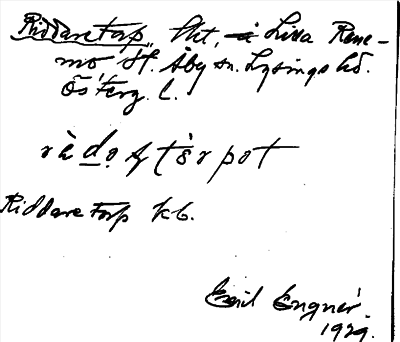 Riddaretorp, lht, i Lilla Rene-
mo St. Åby sn. Lysings hd.
Österg. l.
Riddaretorp kb.
Emil Engnér
1929.